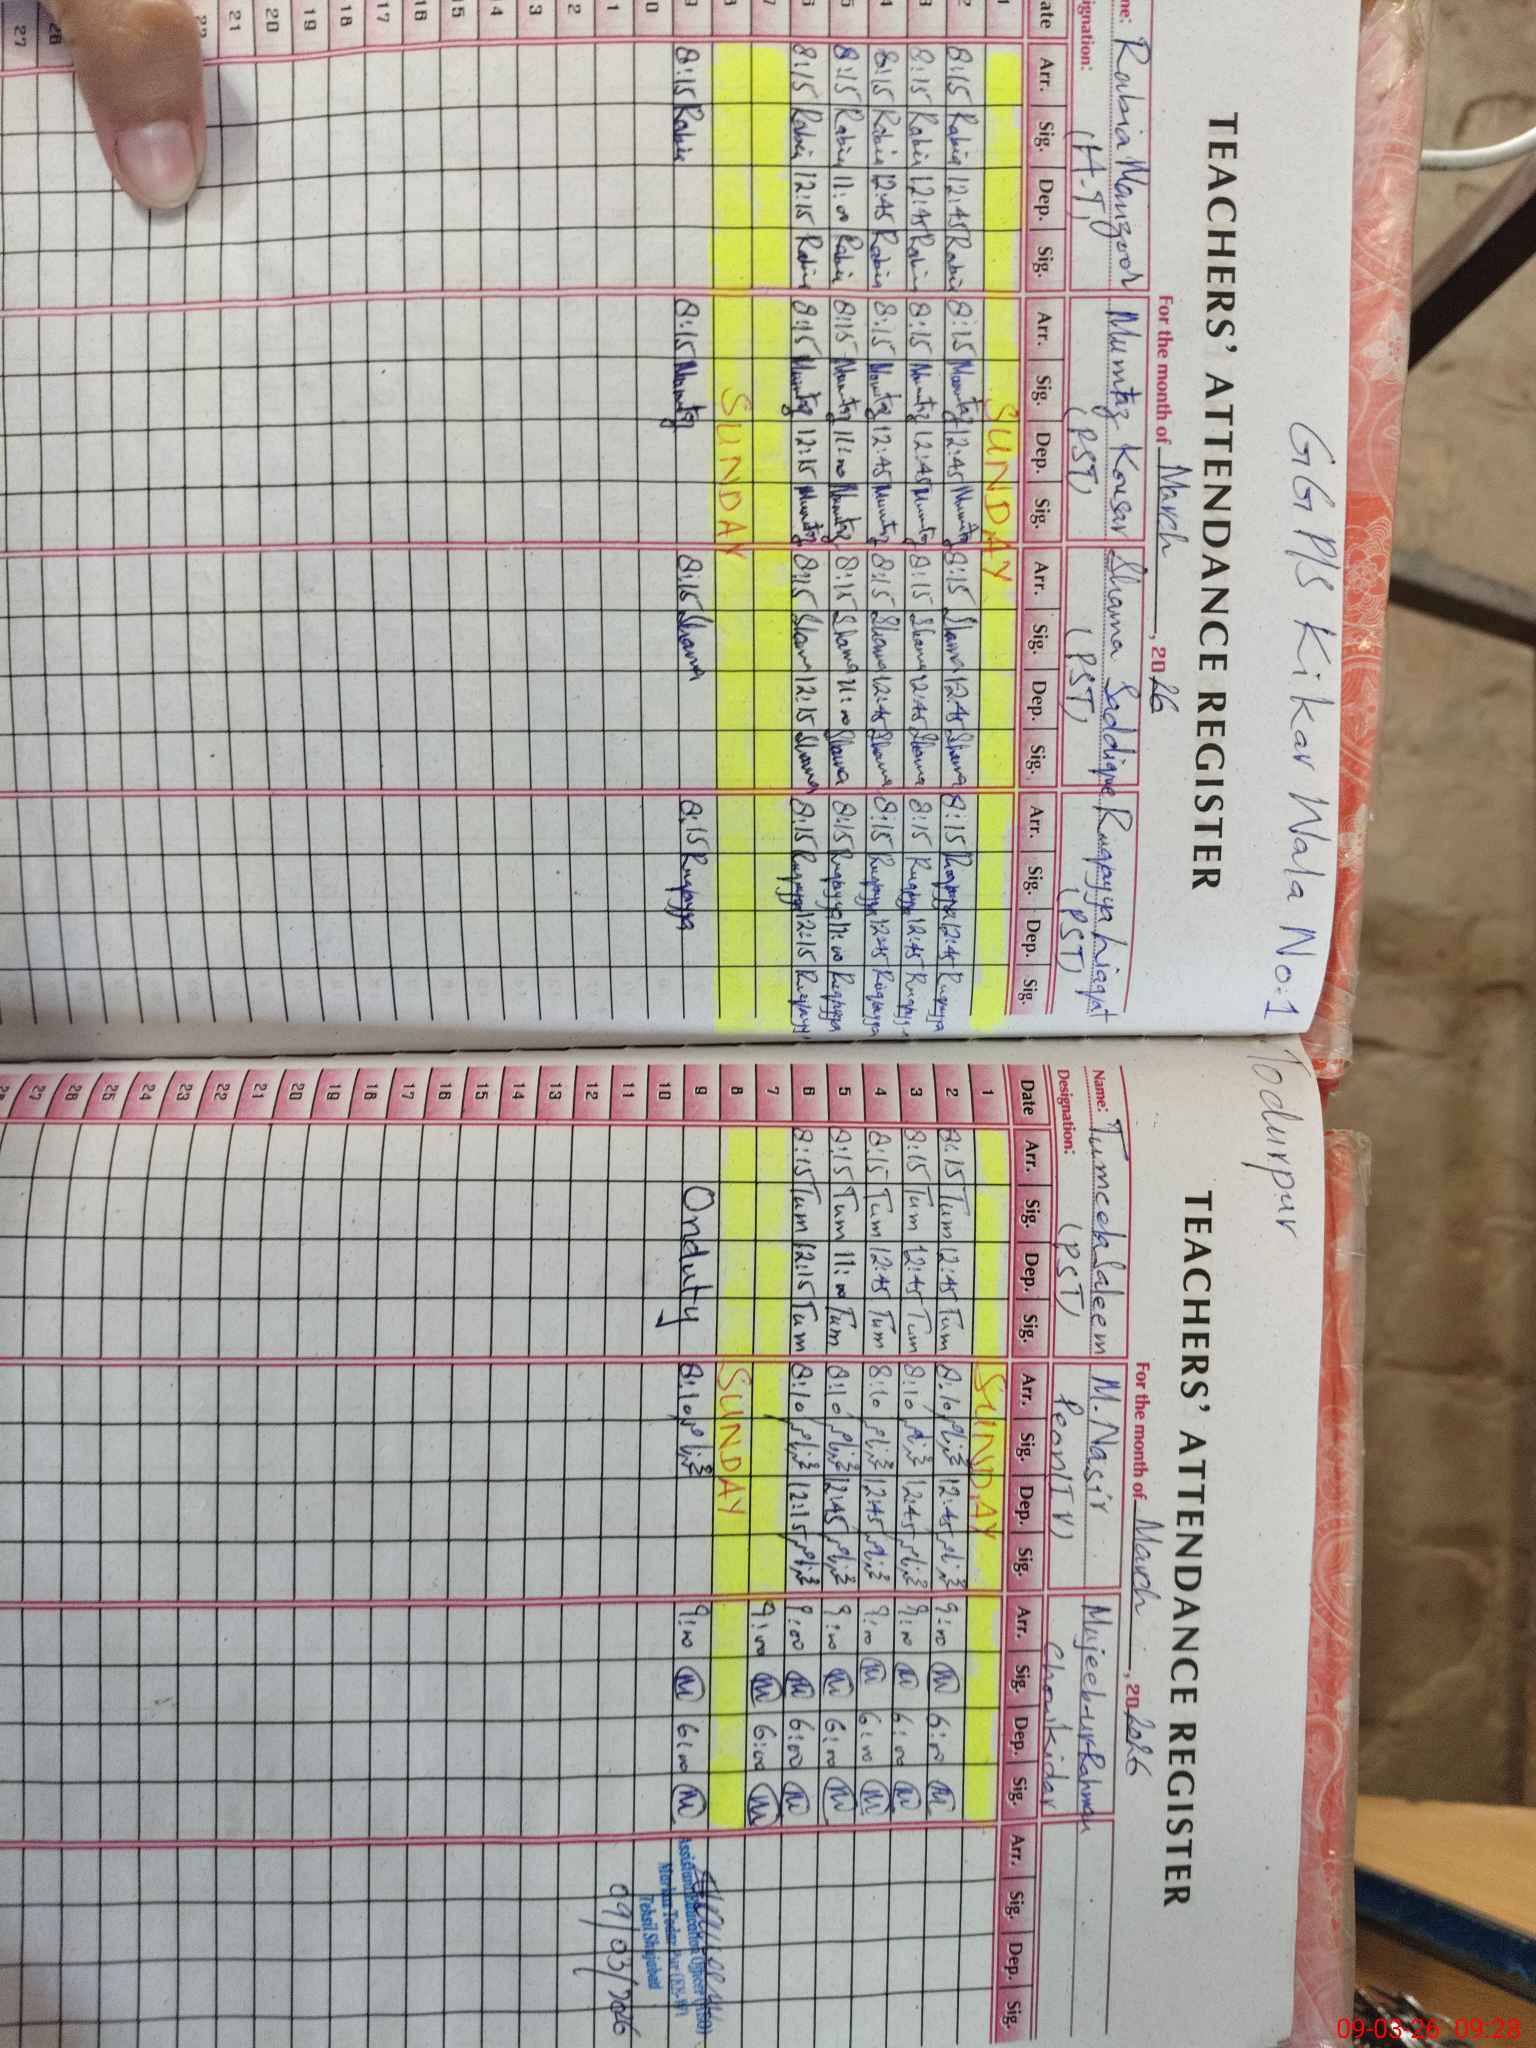 GGP/S Kikar Wala No:1
TEACHERS' ATTENDANCE REGISTER
For the month of March, 2026
Rabia Manzoor Mumtaz Kousar Shama Saddique Ruqayya Liaqat
ignation: (H.T) (PST) (PST) (PST)
ate Arr. Sig. Dep. Sig. Arr. Sig. Dep. Sig. Arr. Sig. Dep. Sig. Arr. Sig. Dep. Sig.
1 SUNDAY
2 8:15 Rabia 12:45 Rabia 8:15 Mumtaz 12:45 Mumtaz 8:15 Shama 12:45 Shama 8:15 Ruqayya 12:45 Ruqayya
3 8:15 Rabia 12:45 Rabia 8:15 Mumtaz 12:45 Mumtaz 8:15 Shama 12:45 Shama 8:15 Ruqayya 12:45 Ruqayya
4 8:15 Rabia 12:45 Rabia 8:15 Mumtaz 12:45 Mumtaz 8:15 Shama 12:45 Shama 8:15 Ruqayya 12:45 Ruqayya
5 8:15 Rabia 11:00 Rabia 8:15 Mumtaz 11:00 Mumtaz 8:15 Shama 11:00 Shama 8:15 Ruqayya 11:00 Ruqayya
6 8:15 Rabia 12:15 Rabia 8:15 Mumtaz 12:15 Mumtaz 8:15 Shama 12:15 Shama 8:15 Ruqayya 12:15 Ruqayya
7
8 SUNDAY
9 8:15 Rabia 8:15 Mumtaz 8:15 Shama 8:15 Ruqayya
0
1
2
3
14
15
16
17
18
19
20
21
22
26
27
Todurpur
TEACHERS' ATTENDANCE REGISTER
For the month of March, 202026
Name: Tumeela Saleem M. Nasir Mujeeb-ur-Rahman
Designation: (PST) Peon(IV) Chowkidar
Date Arr. Sig. Dep. Sig. Arr. Sig. Dep. Sig. Arr. Sig. Dep. Sig. Arr. Sig. Dep. Sig.
1 SUNDAY
2 8:15 Tum 12:45 Tum 8:10 12:45 9:00 M 6:00 M
3 8:15 Tum 12:45 Tum 8:10 12:45 9:00 M 6:00 M
4 8:15 Tum 12:45 Tum 8:10 12:45 9:00 M 6:00 M
5 8:15 Tum 11:00 Tum 8:10 12:45 9:00 M 6:00 M
6 8:15 Tum 12:15 Tum 8:10 12:15 9:00 M 6:00 M
7 9:00 M 6:00 M
8 SUNDAY
9 Onduty 8:10 9:00 M 6:00 M
10
11
12
13
14
15
16
17
18
19
20
21
22
23
24
25
26
27
Assistant Education Officer
Tehsil Shujabad
09/03/2026
09-03-26 09:28